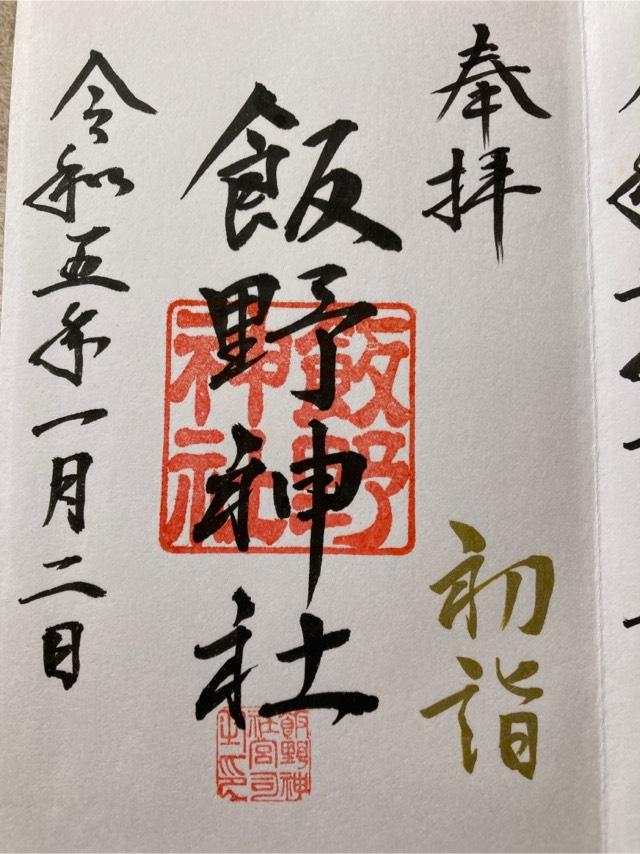 奉拝
初詣
飯野神社
飯野神社
飯野神社宮司之印
令和五年一月二日